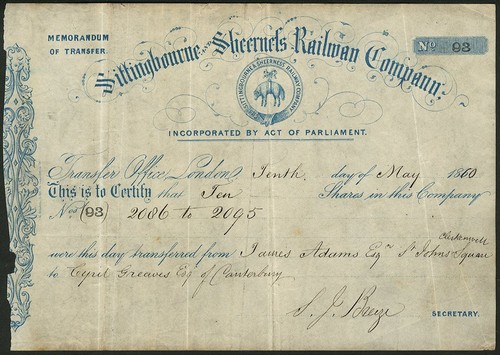 MEMORANDUM
OF TRANSFER.
Sittingbourne AND Sheerness Railway Company.
No 93
SITTINGBOURNE & SHEERNESS RAILWAY COMPANY
INCORPORATED BY ACT OF PARLIAMENT.
Transfer Office, London, Tenth day of May 1860
This is to Certify that Ten Shares in this Company
Nos (93) 2086 to 2095
Clerkenwell
were this day transferred from James Adams Esqre St Johns Square
to Cyril Greaves Esq of Canterbury
S. J. Breeze
SECRETARY.